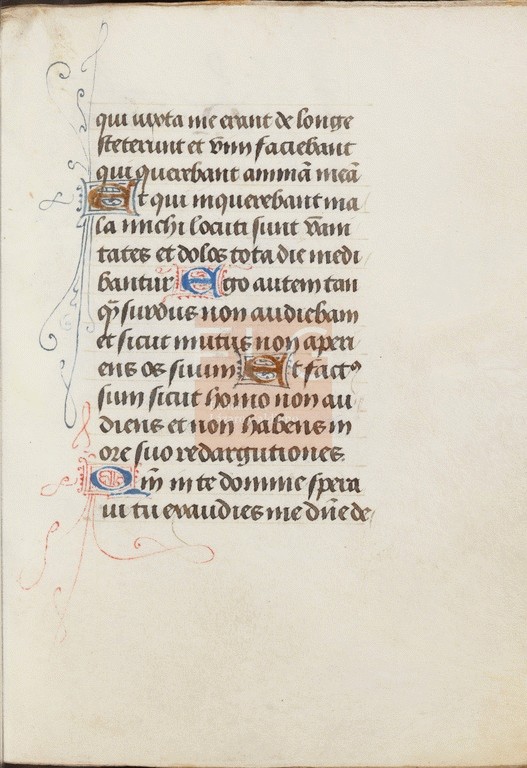 qui iuxta me erant de longe
steterunt et vim faciebant
qui querebant animā meā
Et qui inquerebant ma
la michi locuti sunt vani
tates et dolos tota die medi
bantur Ego autem tan
qͫ surdus non audiebam
et sicut mutus non aperi
ens os suum Et factꝰ
sum sicut homo non au
diens et non habens in
ore suo redargutiones
Qm̄ in te domine spera
ui tu exaudies me dn̄e de